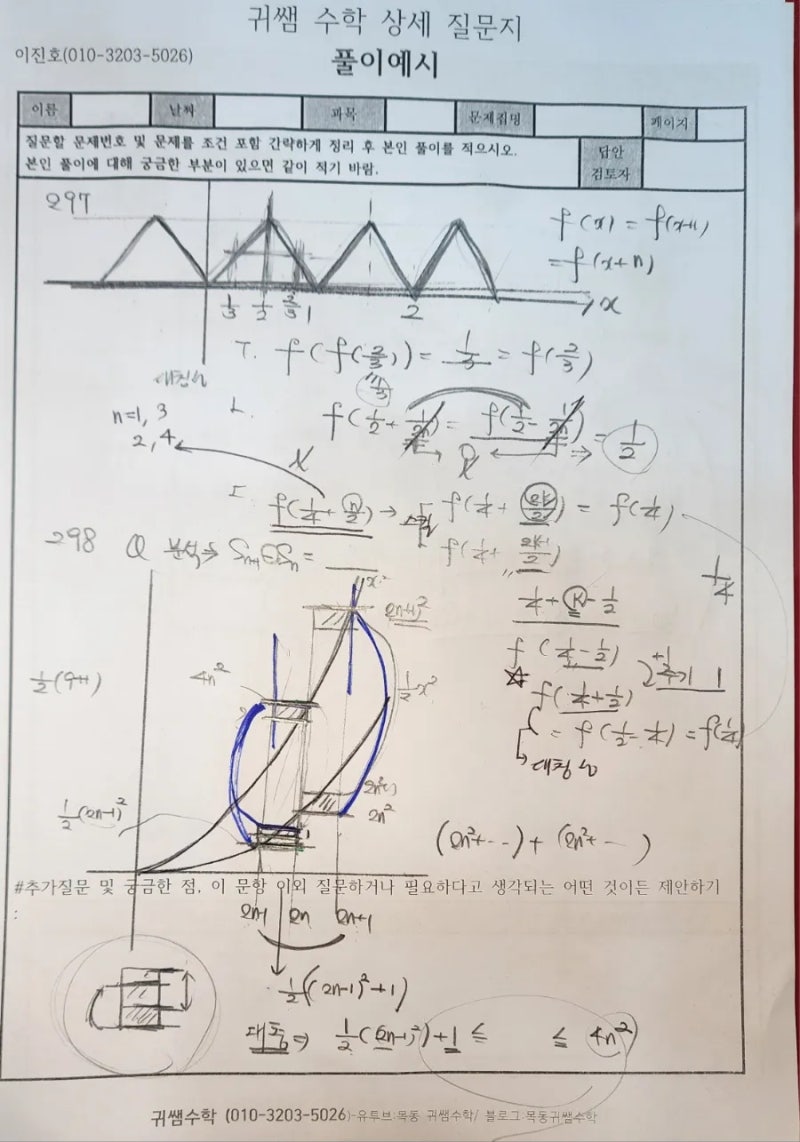 귀쌤 수학 상세 질문지
이진호(010-3203-5026)
풀이예시
이름 날짜 과목 문제집명 페이지
질문할 문제번호 및 문제를 조건 포함 간략하게 정리 후 본인 풀이를 적으시오.
본인 풀이에 대해 궁금한 부분이 있으면 같이 적기 바람.
답안
검토자
297
f(x) = f(x+1)
= f(x+n)
1/3 1/2 2/3 1 2 x
ㄱ. f(f(2/3)) = 1/3 = f(2/3)
대칭성
n=1, 3
2, 4
ㄴ. f(1/2 + 1/2n) = f(1/2 - 1/2n) = 1/2
ㄷ. f(1/4 + n/2) → f(1/4 + 2k/2) = f(1/4)
f(1/4 + 2k-1/2)
298 Q 분석 ⇒ =
1/4 + k - 1/2
1/4
f(1/4 - 1/2)
+1
주기 1
f(1/4 + 1/2)
= f(1/2 - 1/4) = f(1/4)
대칭성
x²
(2n+1)²
4n²
1/2 x²
2n²
1/2(2n-1)²
(2n²+ ··) + (2n²+ ··· )
#추가질문 및 궁금한 점, 이 문항 이외 질문하거나 필요하다고 생각되는 어떤 것이든 제안하기
:
2n-1 2n 2n+1
1/2((2n-1)²+1)
⇒ 1/2(2n-1)²+1 ≤ ≤ 4n²
귀쌤수학 (010-3203-5026)-유투브:목동 귀쌤수학/ 블로그:목동귀쌤수학